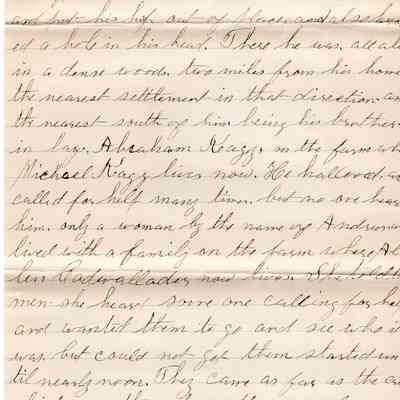 and put his hip out of place, and also knock
ed a hole in his head. There he was, all alo
in a dense wood, two miles from his home
the nearest settlement in that direction an
the nearest south of him being his brother-
in law, Abraham Kagg, on the farm wh
Michael Kagg lives now. He hallooed, an
called for help many times, but no one hear
him. only a woman by the name of Anderson
lived with a family on the farm where Al
len Cadwallader now lives. She told the
men she heard some one calling for hel
and wanted them to go and see who it
was, but could not get them started un
til nearly noon. They came as far as the